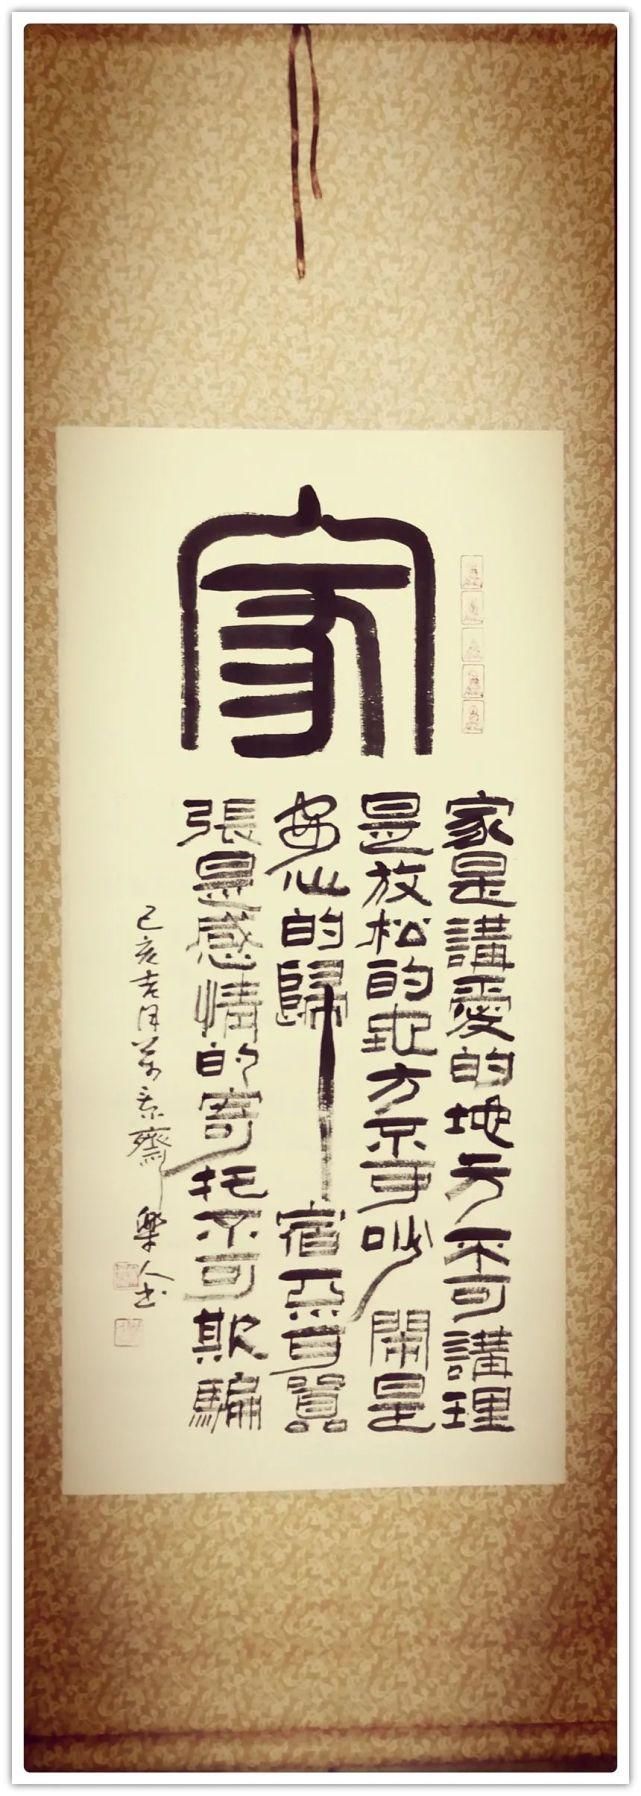 家
家是講愛的地方不可講理
是放松的地方不可吵鬧是
安心的歸宿不可囂
張是感情的寄托不可欺騙
己亥吉月萬景齋樂人书